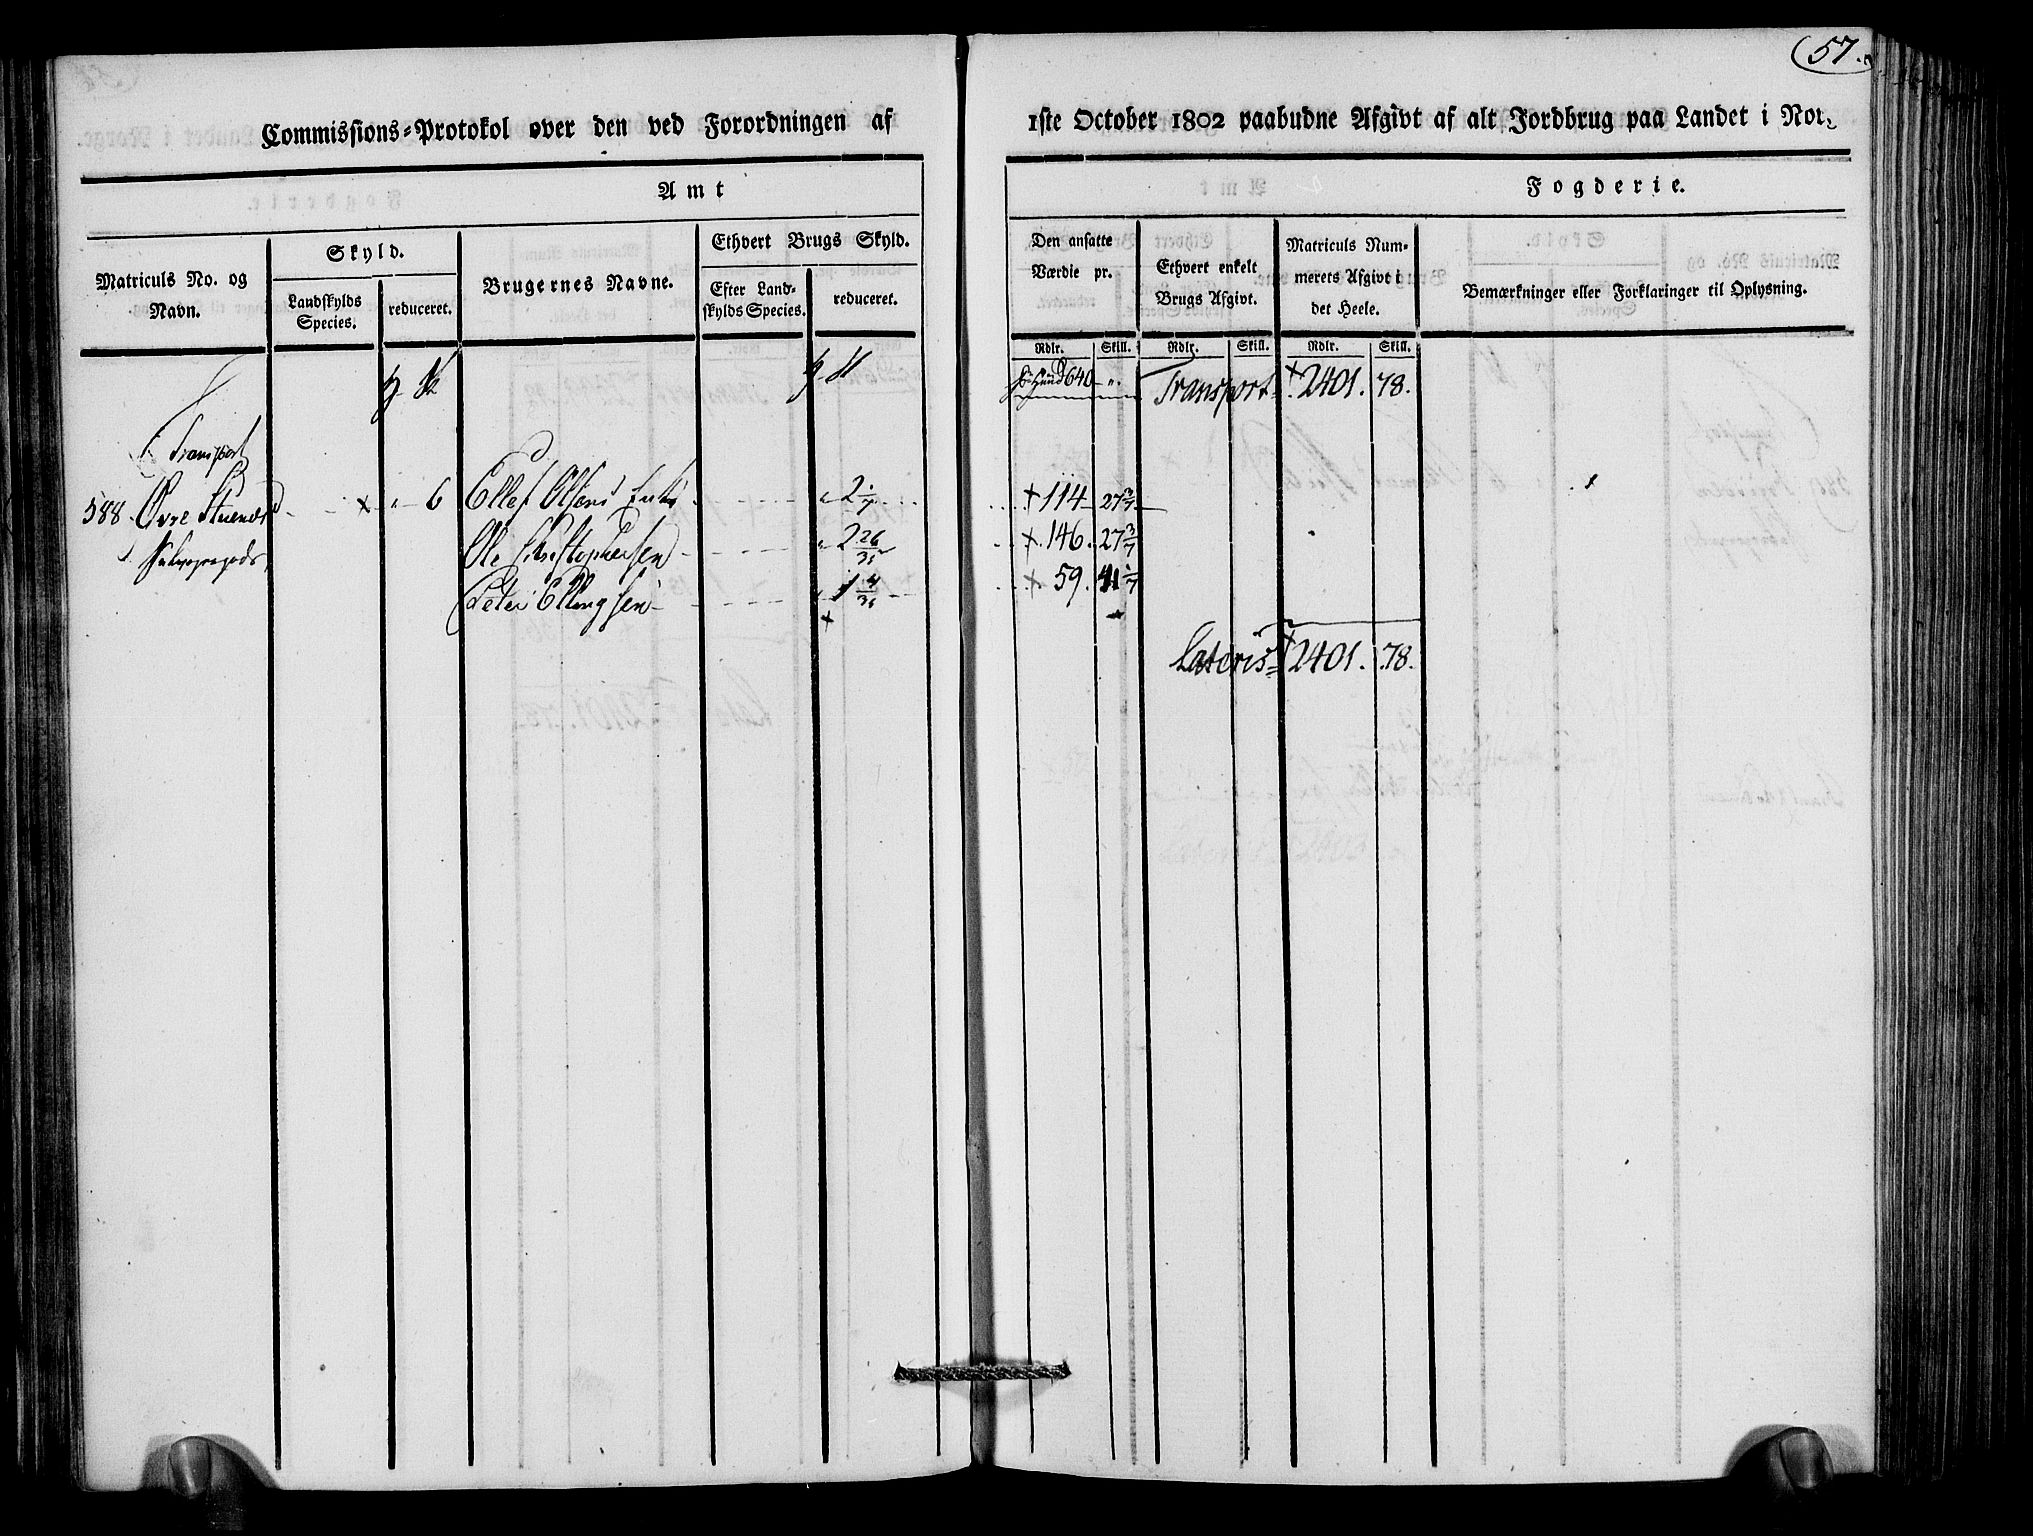 57.
Commissions=Protokol over den ved Forordningen af 1ste October 1802 paabudne Afgivt af alt Jordbrug paa Landet i Nor-
Amt
Fogderie.
Matriculs No. og Navn.
Skyld.
Landskylds Species.
reduceret.
Brugernes Navne.
Ethvert Brugs Skyld.
Efter Land-skylds Species.
reduceret.
Den ansatte Værdie pr.
Ethvert enkelt Brugs Afgivt.
Matriculs Num-merets Afgivt i det Heele.
Bemærkninger eller Forklaringer til Oplysning.
Rdlr. Skill. Rdlr. Skill. Rdlr. Skill.
640 " Transport 2401. 78.
Transport
588. Øvre " 6 Ellef Olsens Enke " 2 1/7 114 27 3/7
Ole Christophersen " 2 26/35 146. 27 3/7
Peter Ellingsen " 1 4/35 59. 41 1/7
Lateris 2401. 78.